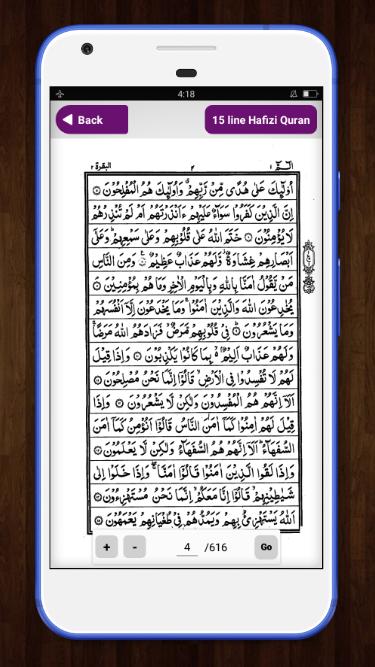 4:18
Back
15 line Hafizi Quran
البقرة ٢
٣
الٓمّٓ ١
اُولٰٓئِكَ عَلٰى هُدًى مِّنْ رَّبِّهِمْ ۗ وَاُولٰٓئِكَ هُمُ الْمُفْلِحُوْنَ ۝
اِنَّ الَّذِيْنَ كَفَرُوْا سَوَآءٌ عَلَيْهِمْ ءَاَنْذَرْتَهُمْ اَمْ لَمْ تُنْذِرْهُمْ
لَا يُؤْمِنُوْنَ ۝ خَتَمَ اللّٰهُ عَلٰى قُلُوْبِهِمْ وَعَلٰى سَمْعِهِمْ ؕ وَعَلٰٓى
اَبْصَارِهِمْ غِشَاوَةٌ ؗ وَّلَهُمْ عَذَابٌ عَظِيْمٌ ۝ وَمِنَ النَّاسِ
مَنْ يَّقُوْلُ اٰمَنَّا بِاللّٰهِ وَبِالْيَوْمِ الْاٰخِرِ وَمَا هُمْ بِمُؤْمِنِيْنَ ۝
يُخٰدِعُوْنَ اللّٰهَ وَالَّذِيْنَ اٰمَنُوْا ۚ وَمَا يَخْدَعُوْنَ اِلَّاۤ اَنْفُسَهُمْ
وَمَا يَشْعُرُوْنَ ۝ فِيْ قُلُوْبِهِمْ مَّرَضٌ ۙ فَزَادَهُمُ اللّٰهُ مَرَضًا ۚ
وَلَهُمْ عَذَابٌ اَلِيْمٌۢ ۙ بِمَا كَانُوْا يَكْذِبُوْنَ ۝ وَاِذَا قِيْلَ
لَهُمْ لَا تُفْسِدُوْا فِي الْاَرْضِ ۙ قَالُوْۤا اِنَّمَا نَحْنُ مُصْلِحُوْنَ ۝
اَلَاۤ اِنَّهُمْ هُمُ الْمُفْسِدُوْنَ وَلٰكِنْ لَّا يَشْعُرُوْنَ ۝ وَاِذَا
قِيْلَ لَهُمْ اٰمِنُوْا كَمَاۤ اٰمَنَ النَّاسُ قَالُوْۤا اَنُؤْمِنُ كَمَاۤ اٰمَنَ
السُّفَهَآءُ ؕ اَلَاۤ اِنَّهُمْ هُمُ السُّفَهَآءُ وَلٰكِنْ لَّا يَعْلَمُوْنَ ۝
وَاِذَا لَقُوا الَّذِيْنَ اٰمَنُوْا قَالُوْۤا اٰمَنَّا ۖۚ وَاِذَا خَلَوْا اِلٰى
شَيٰطِيْنِهِمْ ۙ قَالُوْۤا اِنَّا مَعَكُمْ ۙ اِنَّمَا نَحْنُ مُسْتَهْزِءُوْنَ ۝
اَللّٰهُ يَسْتَهْزِئُ بِهِمْ وَيَمُدُّهُمْ فِيْ طُغْيَانِهِمْ يَعْمَهُوْنَ ۝
+ - 4 /616 Go